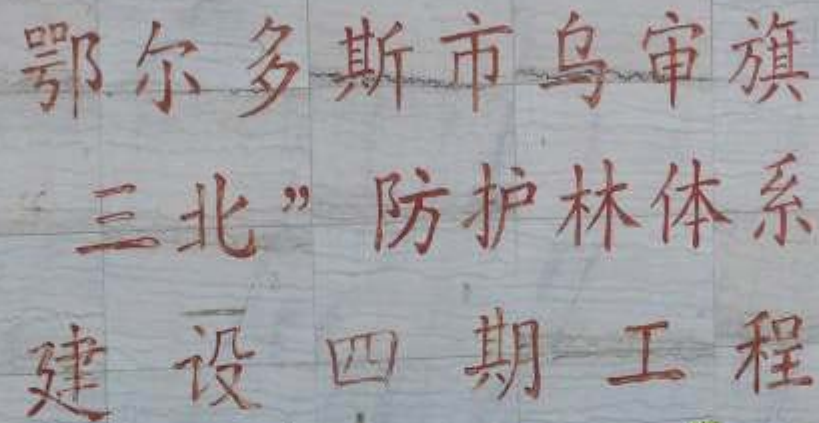 鄂尔多斯市乌审旗
三北”防护林体系
建设四期工程